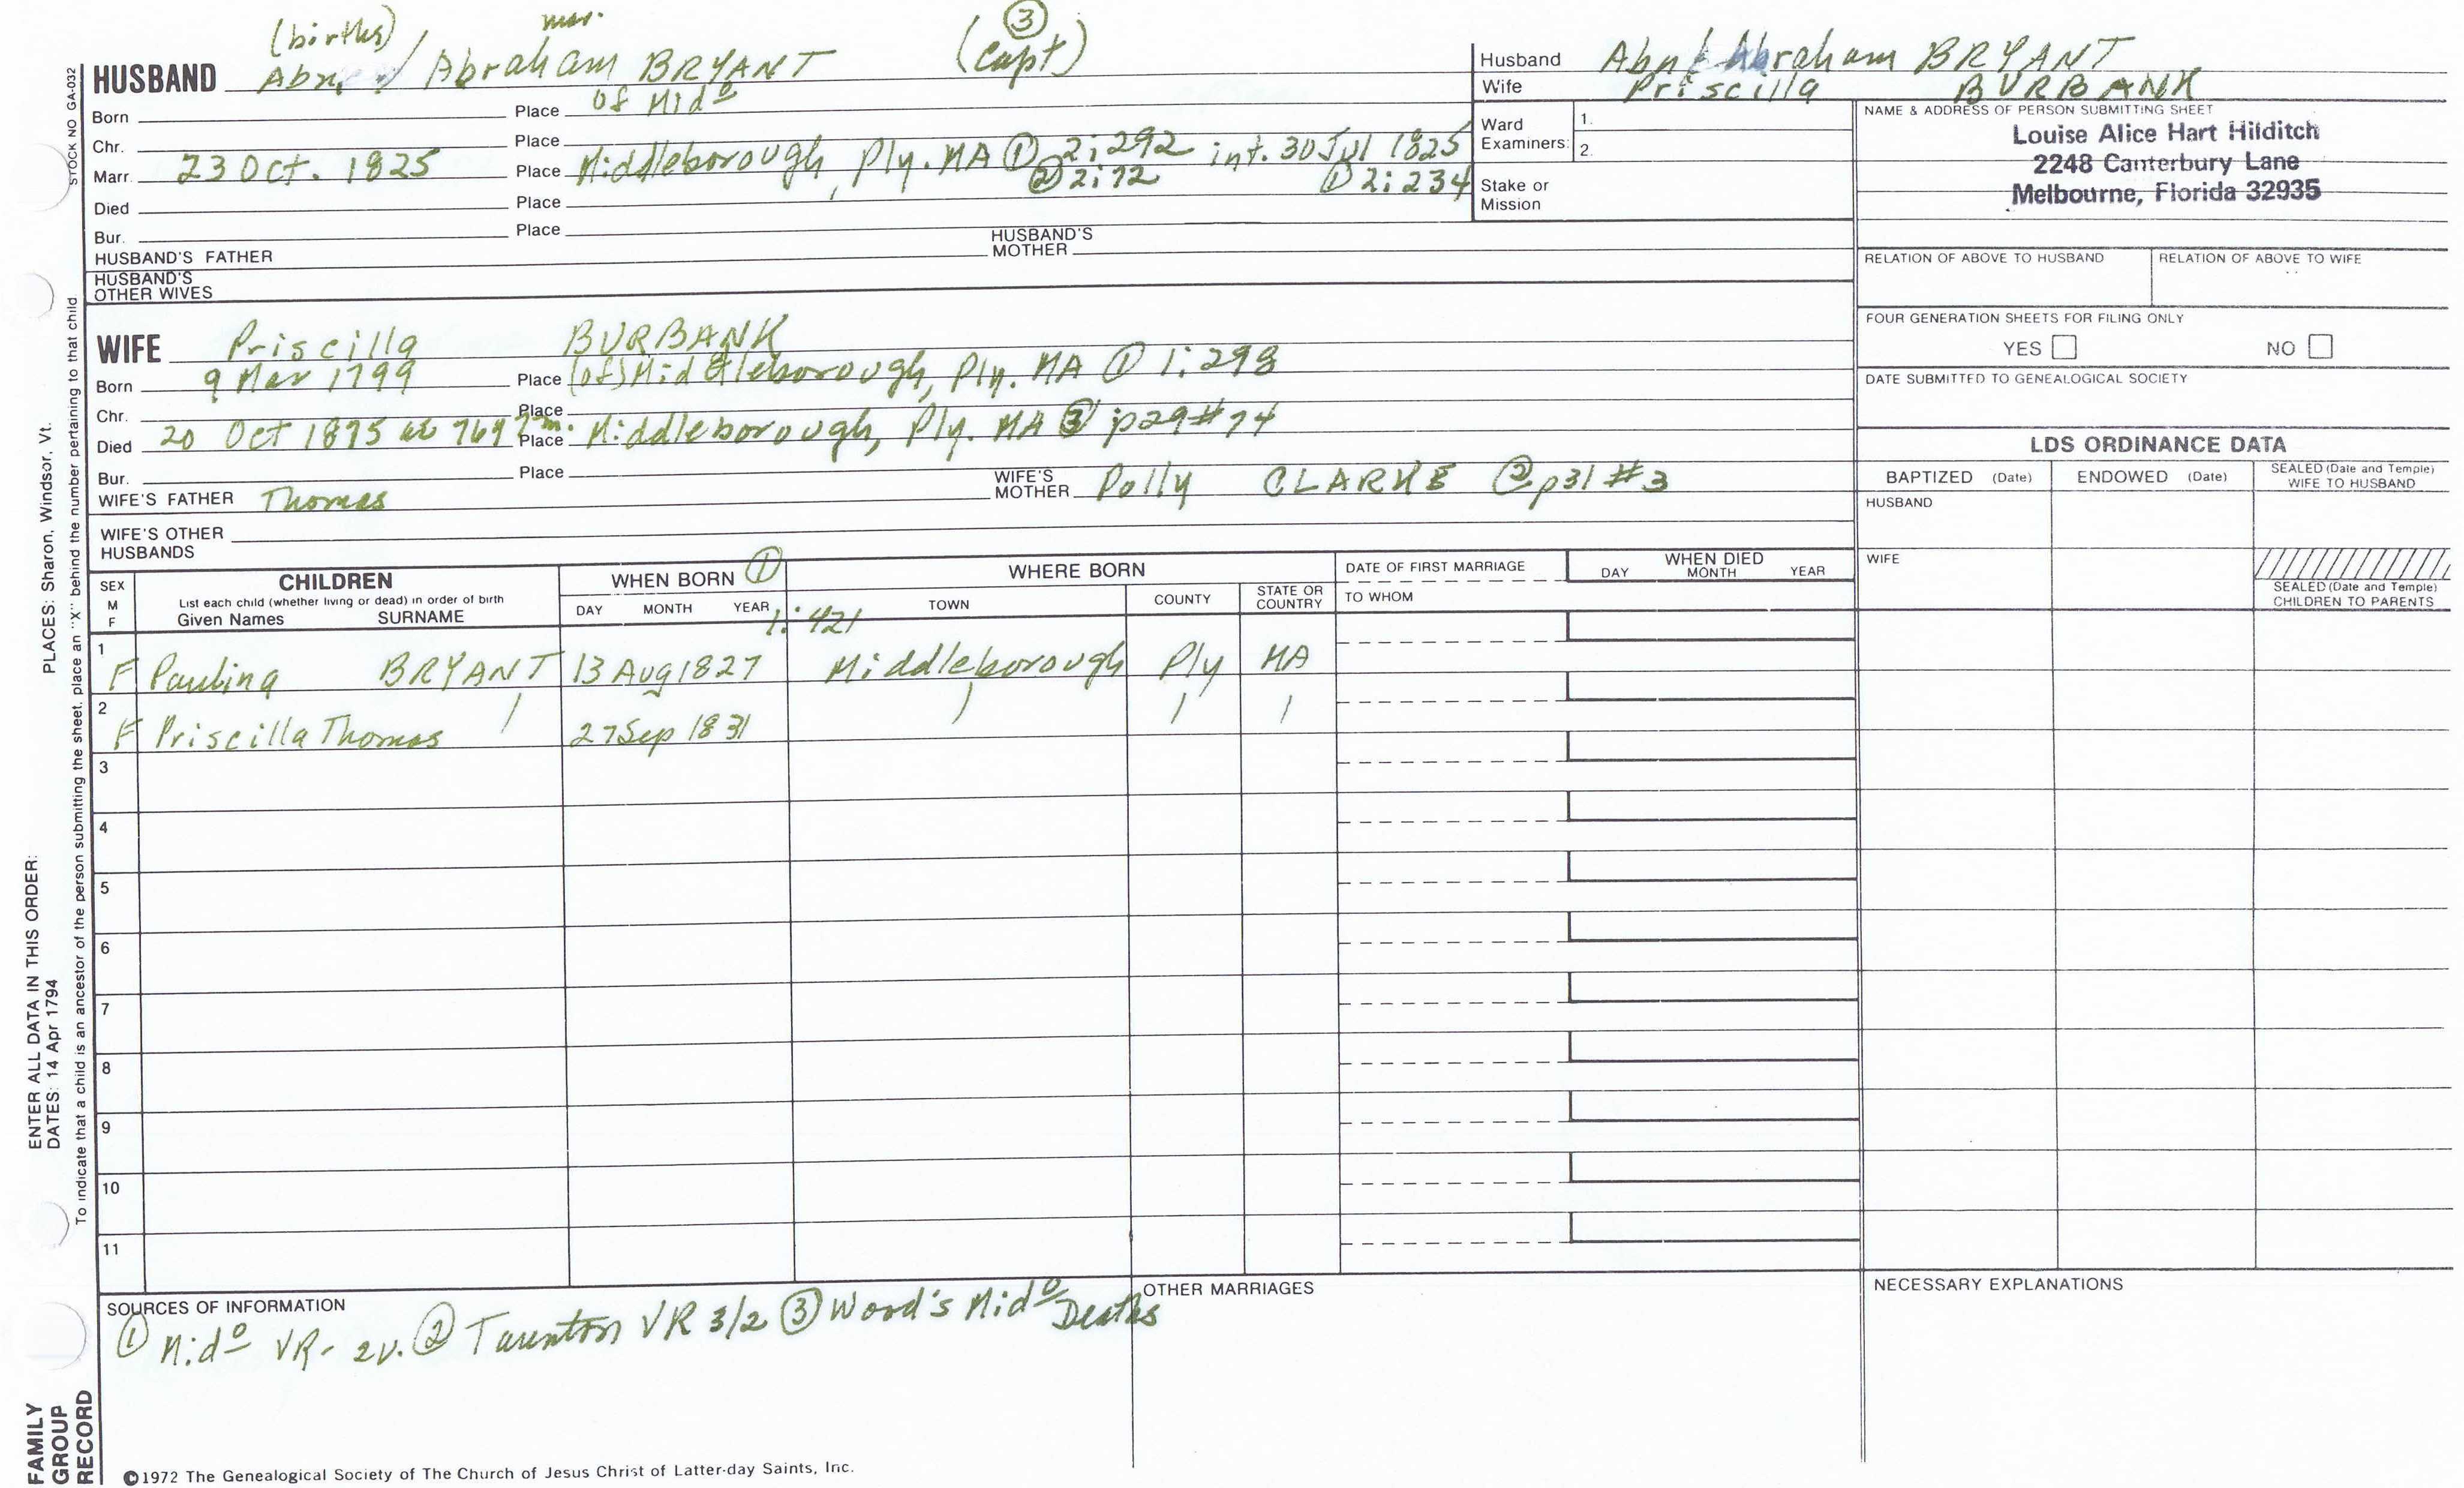 (births) mar. ③
HUSBAND / Abraham BRYANT (Capt)
Born Place of Mid⁰
Chr. Place
Marr. 23 Oct. 1825 Place Middleborough, Ply. MA ① 2:292 int. 30 Jul 1825
② 2:72 ① 2:234
Died Place
Bur. Place
HUSBAND'S FATHER HUSBAND'S MOTHER
HUSBAND'S OTHER WIVES
Husband Abraham BRYANT
Wife Priscilla BURBANK
Ward Examiners: 1.
2.
Stake or Mission
NAME & ADDRESS OF PERSON SUBMITTING SHEET
Louise Alice Hart Hilditch
2248 Canterbury Lane
Melbourne, Florida 32935
RELATION OF ABOVE TO HUSBAND RELATION OF ABOVE TO WIFE
FOUR GENERATION SHEETS FOR FILING ONLY
YES NO
DATE SUBMITTED TO GENEALOGICAL SOCIETY
WIFE Priscilla BURBANK
Born 9 Mar 1799 Place (of) Middleborough, Ply. MA ① 1:298
Chr. Place
Died 20 Oct 1875 Place Middleborough, Ply. MA ③ p29#74
Bur. Place
WIFE'S FATHER Thomas WIFE'S MOTHER Polly CLARKE @p31 #3
WIFE'S OTHER HUSBANDS
LDS ORDINANCE DATA
BAPTIZED (Date) ENDOWED (Date) SEALED (Date and Temple) WIFE TO HUSBAND
HUSBAND
WIFE
SEALED (Date and Temple) CHILDREN TO PARENTS
SEX M F
CHILDREN
List each child (whether living or dead) in order of birth
Given Names SURNAME
WHEN BORN ①
DAY MONTH YEAR
1:421
WHERE BORN
TOWN COUNTY STATE OR COUNTRY
DATE OF FIRST MARRIAGE
TO WHOM
WHEN DIED
DAY MONTH YEAR
1 F Paulina BRYANT 13 Aug 1827 Middleborough Ply MA
2 F Priscilla Thomas 27 Sep 1831
3
4
5
6
7
8
9
10
11
SOURCES OF INFORMATION
① Mid⁰ VR- 2v. ② Taunton VR 3/2 ③ Wood's Mid⁰ Deaths
OTHER MARRIAGES
NECESSARY EXPLANATIONS
©1972 The Genealogical Society of The Church of Jesus Christ of Latter-day Saints, Inc.
STOCK NO GA-032
ENTER ALL DATA IN THIS ORDER: PLACES: Sharon, Windsor, Vt.
DATES: 14 Apr 1794
To indicate that a child is an ancestor of the person submitting the sheet, place an "X" behind the number pertaining to that child
FAMILY
GROUP
RECORD